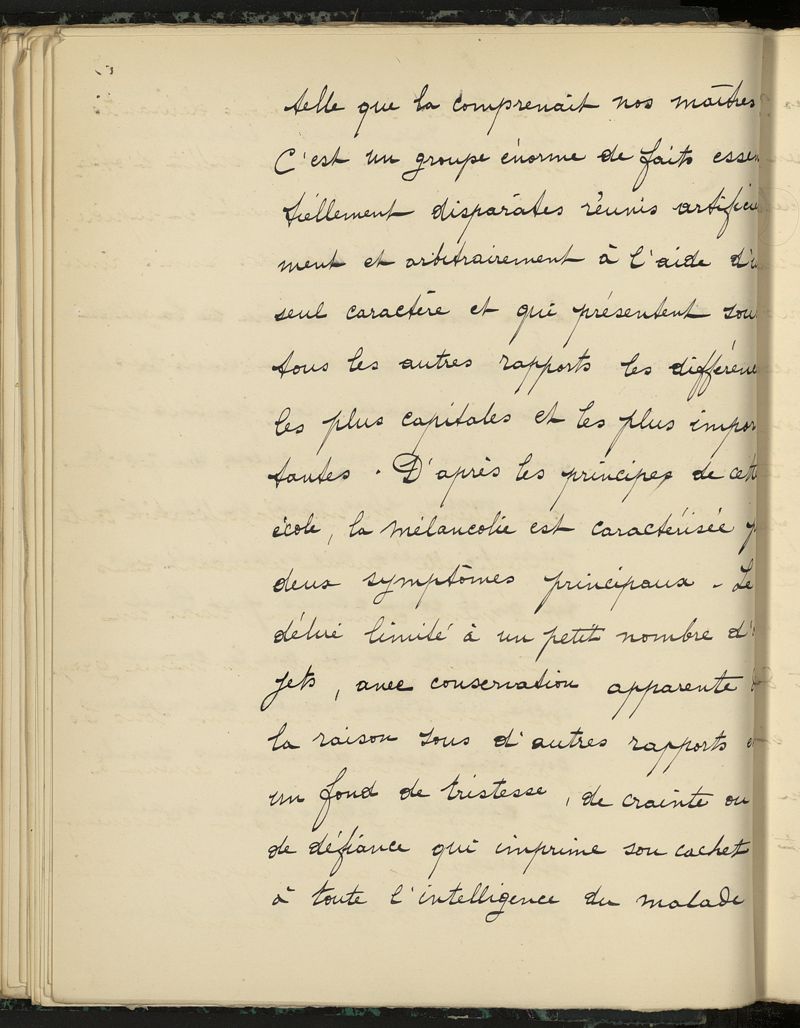 telle que la comprenait nos maîtres
C'est un groupe énorme de faits essen
tiellement disparates réunis artificie
ment et arbitrairement à l'aide d'u
seul caractère et qui présentent sou
tous les autres rapports les différenc
les plus capitales et les plus impor
tantes. D'après les principes de cett
école, la mélancolie est caractérisée p
deux symptômes principaux - Le
délire limité à un petit nombre d'
jets, avec conservation apparente d
la raison sous d'autres rapports e
un fond de tristesse, de crainte ou
de défiance qui imprime son cachet
à toute l'intelligence du malade